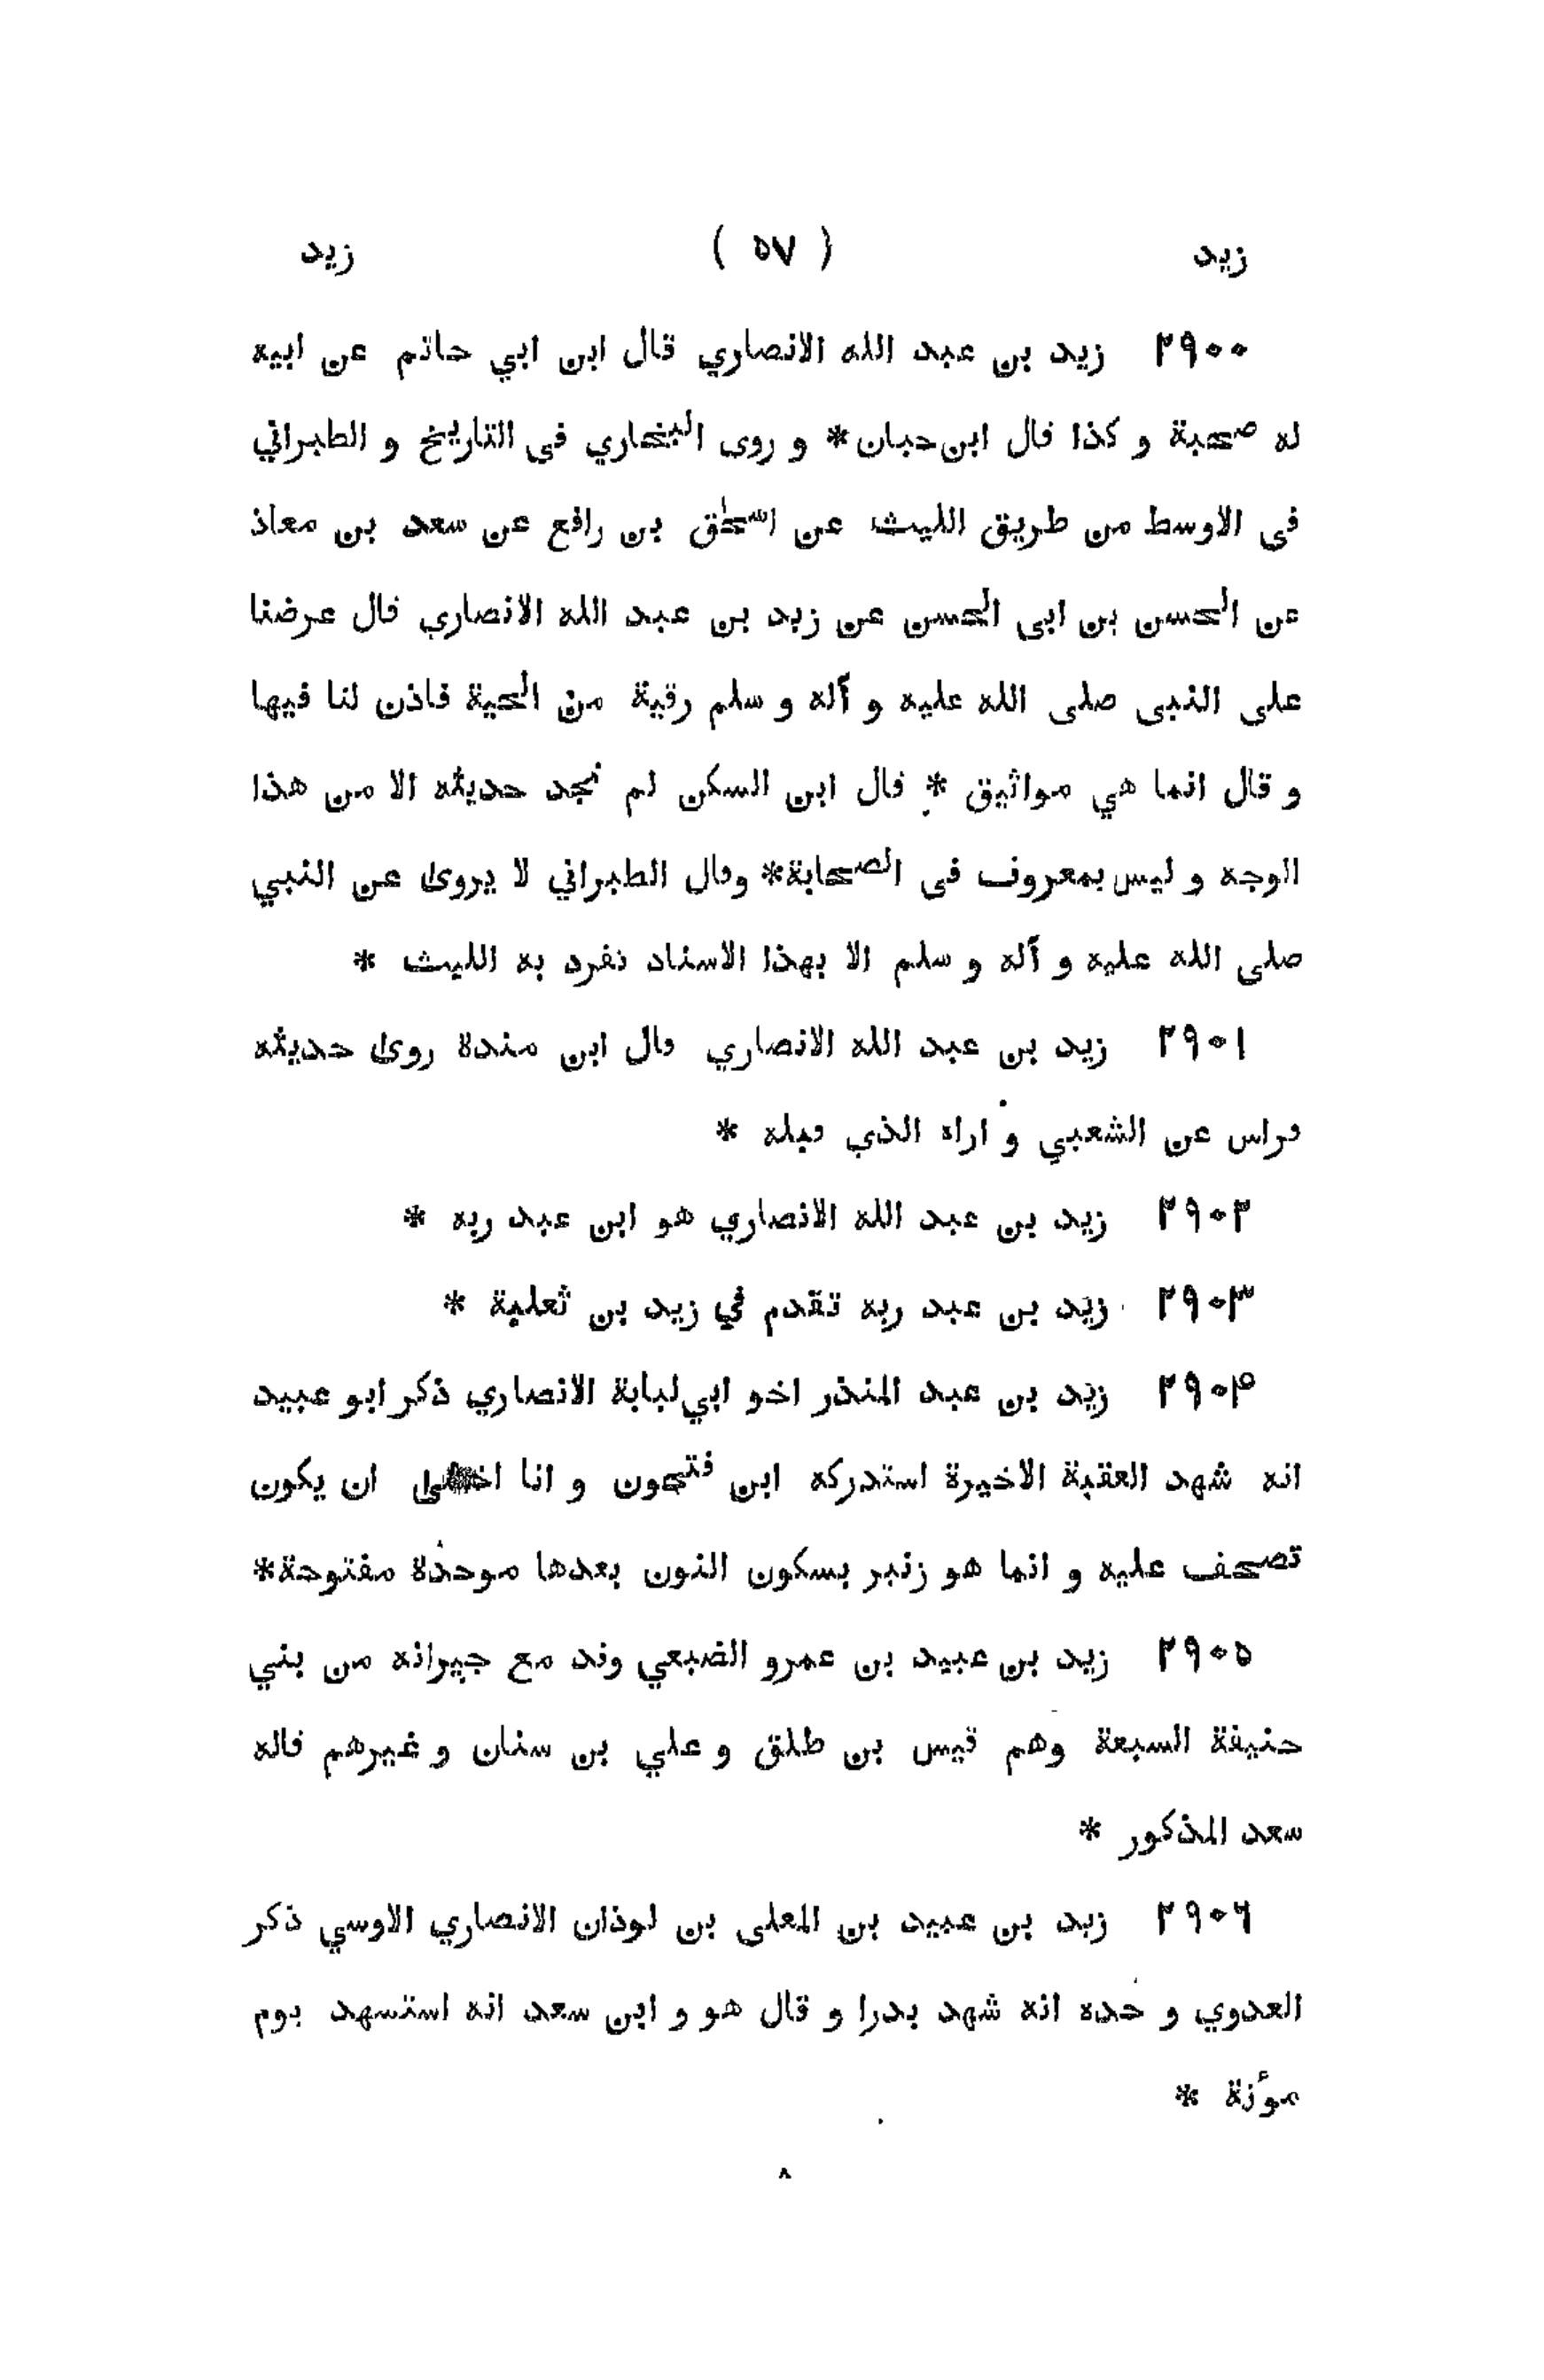 زيد ( ٥٧ ) زيد
٢٩٠٠ زيد بن عبد الله الانصاري قال ابن ابي حاتم عن ابيه
له صحبة و كذا قال ابن حبان * و روى البخاري فى التاريخ و الطبراني
فى الاوسط من طريق الليث عن اسحٰق بن رافع عن سعد بن معاذ
عن الحسن بن ابى الحسن عن زيد بن عبد الله الانصاري قال عرضنا
على النبى صلى الله عليه و آله و سلم رقية من الحية فاذن لنا فيها
و قال انما هي مواثيق * قال ابن السكن لم نجد حديثه الا من هذا
الوجه و ليس بمعروف فى الصحابة * وقال الطبراني لا يروىٰ عن النبي
صلى الله عليه و آله و سلم الا بهذا الاسناد تفرد به الليث *
٢٩٠١ زيد بن عبد الله الانصاري قال ابن مندة روىٰ حديثه
فراس عن الشعبي و اراه الذي قبله *
٢٩٠٢ زيد بن عبد الله الانصاري هو ابن عبد ربه *
٢٩٠٣ زيد بن عبد ربه تقدم في زيد بن ثعلبة *
٢٩٠۴ زيد بن عبد المنذر اخو ابي لبابة الانصاري ذكر ابو عبيد
انه شهد العقبة الاخيرة استدركه ابن فتحون و انا ان يكون
تصحف عليه و انما هو زنبر بسكون النون بعدها موحدة مفتوحة *
٢٩٠٥ زيد بن عبيد بن عمرو الضبعي وفد مع جيرانه من بني
حنيفة السبعة وهم قيس بن طلق و علي بن سنان و غيرهم قاله
سعد المذكور *
٢٩٠٦ زيد بن عبيد بن المعلى بن لوذان الانصاري الاوسي ذكر
العدوي و حده انه شهد بدرا و قال هو و ابن سعد انه استشهد يوم
مؤتة *
٨